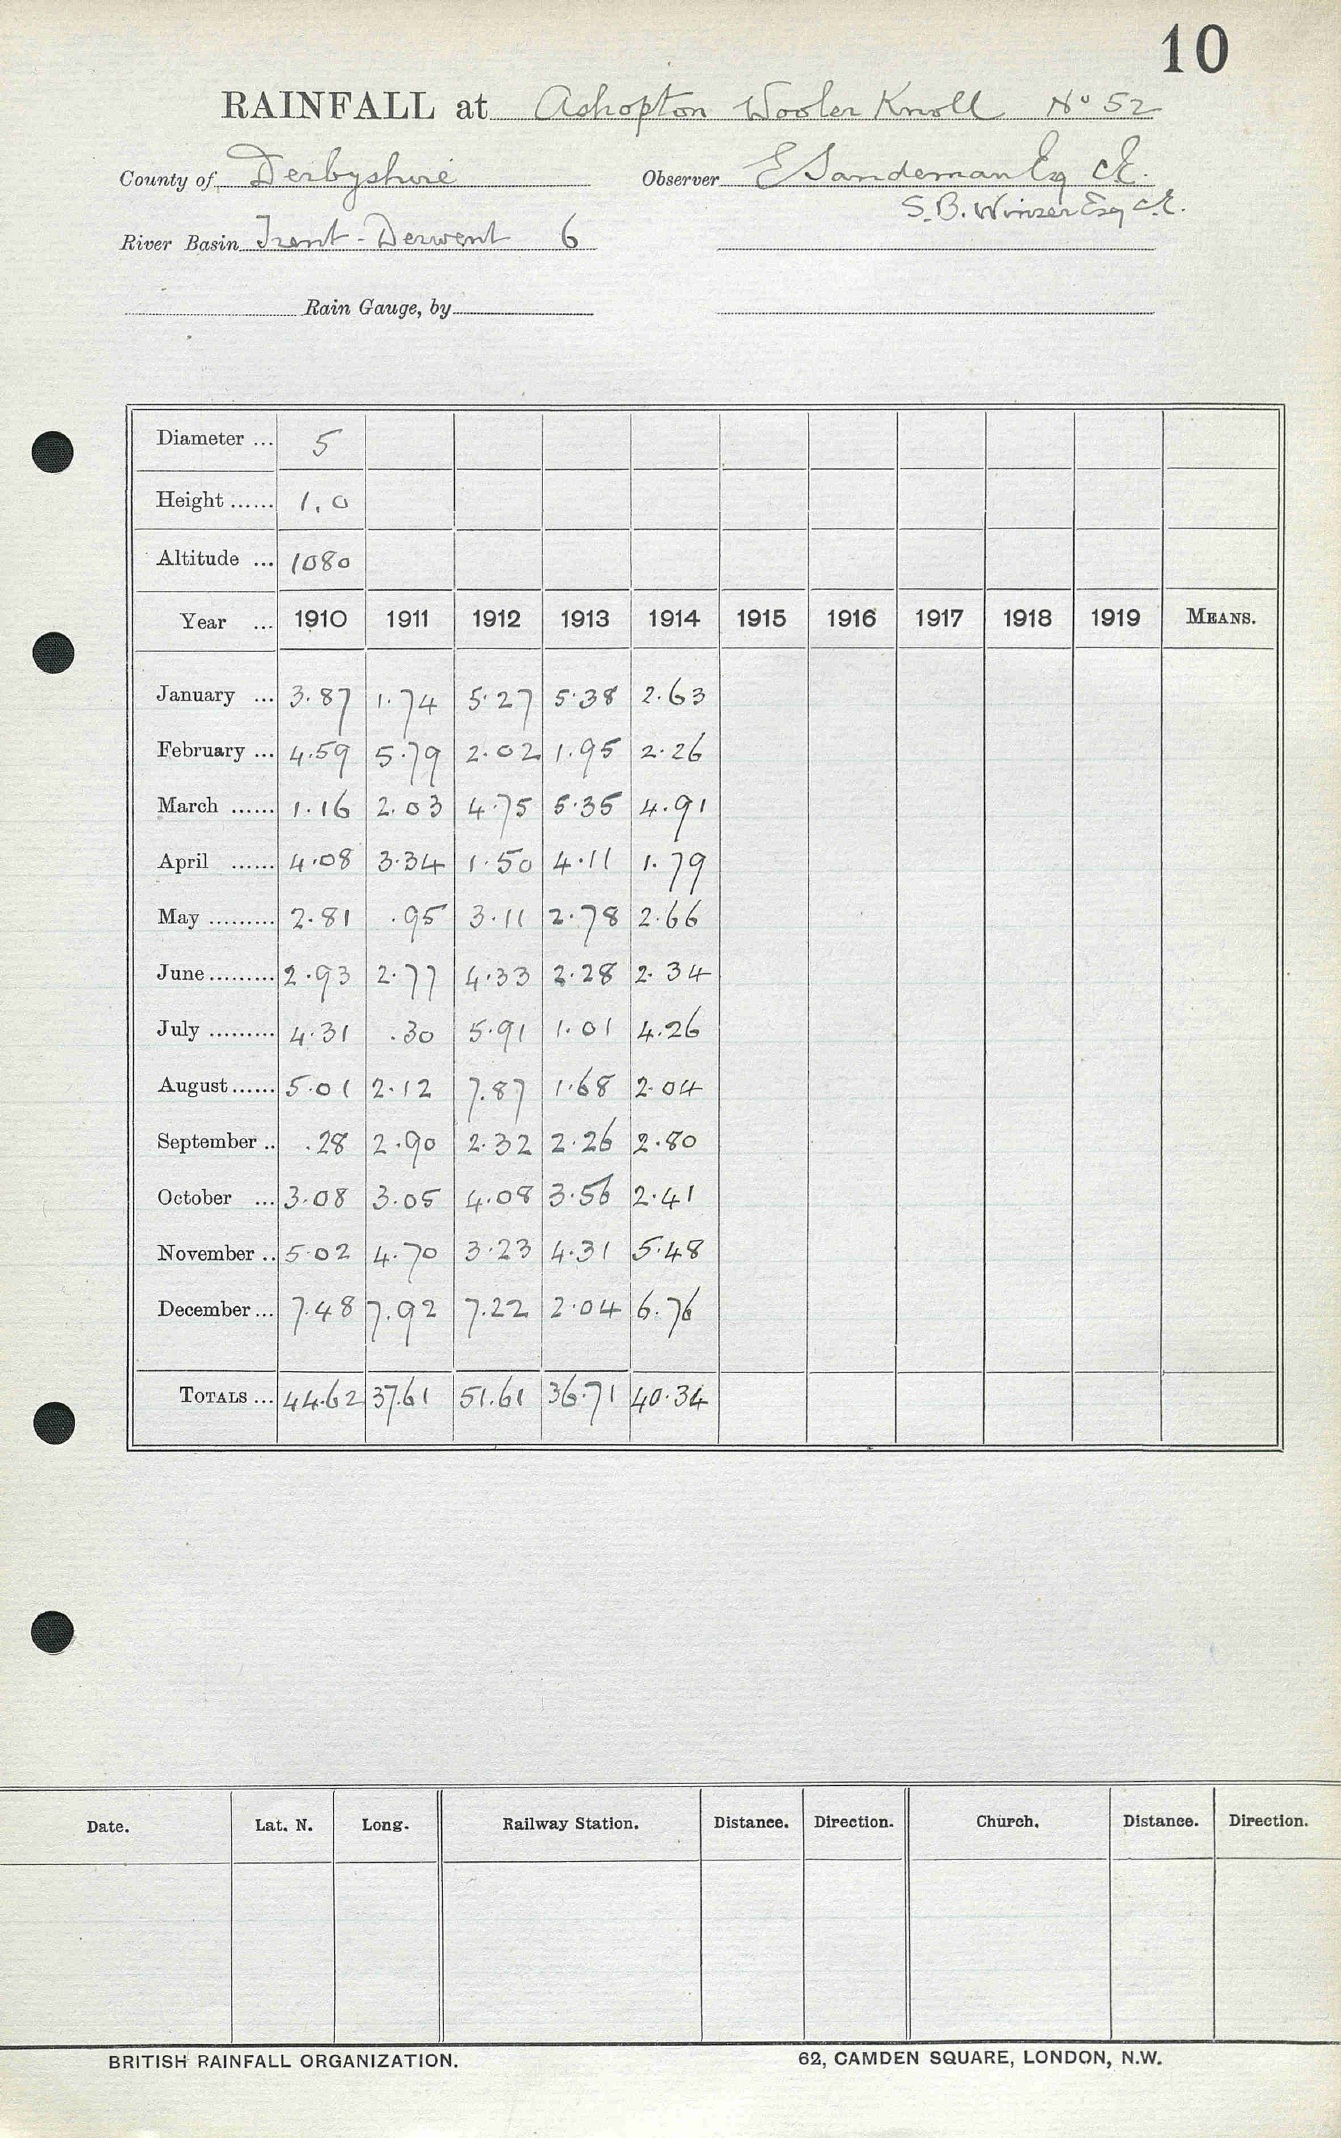 10
RAINFALL at Ashopton Wooler Knoll No 52
County of Derbyshire Observer E Sandeman Esq C.E.
S.B. Winser Esq C.E.
River Basin Trent - Derwent 6
Rain Gauge, by
Diameter ... 5
Height ...... 1.0
Altitude ... 1080
Year ... 1910 1911 1912 1913 1914 1915 1916 1917 1918 1919 MEANS.
January ... 3.87 1.74 5.27 5.38 2.63
February ... 4.59 5.79 2.02 1.95 2.26
March ...... 1.16 2.03 4.75 5.35 4.91
April ...... 4.08 3.34 1.50 4.11 1.79
May ......... 2.81 .95 3.11 2.78 2.66
June ......... 2.93 2.77 4.33 2.28 2.34
July ......... 4.31 .30 5.91 1.01 4.26
August ...... 5.01 2.12 7.87 1.68 2.04
September .. .28 2.90 2.32 2.26 2.80
October ... 3.08 3.05 4.08 3.56 2.41
November .. 5.02 4.70 3.23 4.31 5.48
December ... 7.48 7.92 7.22 2.04 6.76
TOTALS ... 44.62 37.61 51.61 36.71 40.34
Date. Lat. N. Long. Railway Station. Distance. Direction. Church. Distance. Direction.
BRITISH RAINFALL ORGANIZATION. 62, CAMDEN SQUARE, LONDON, N.W.